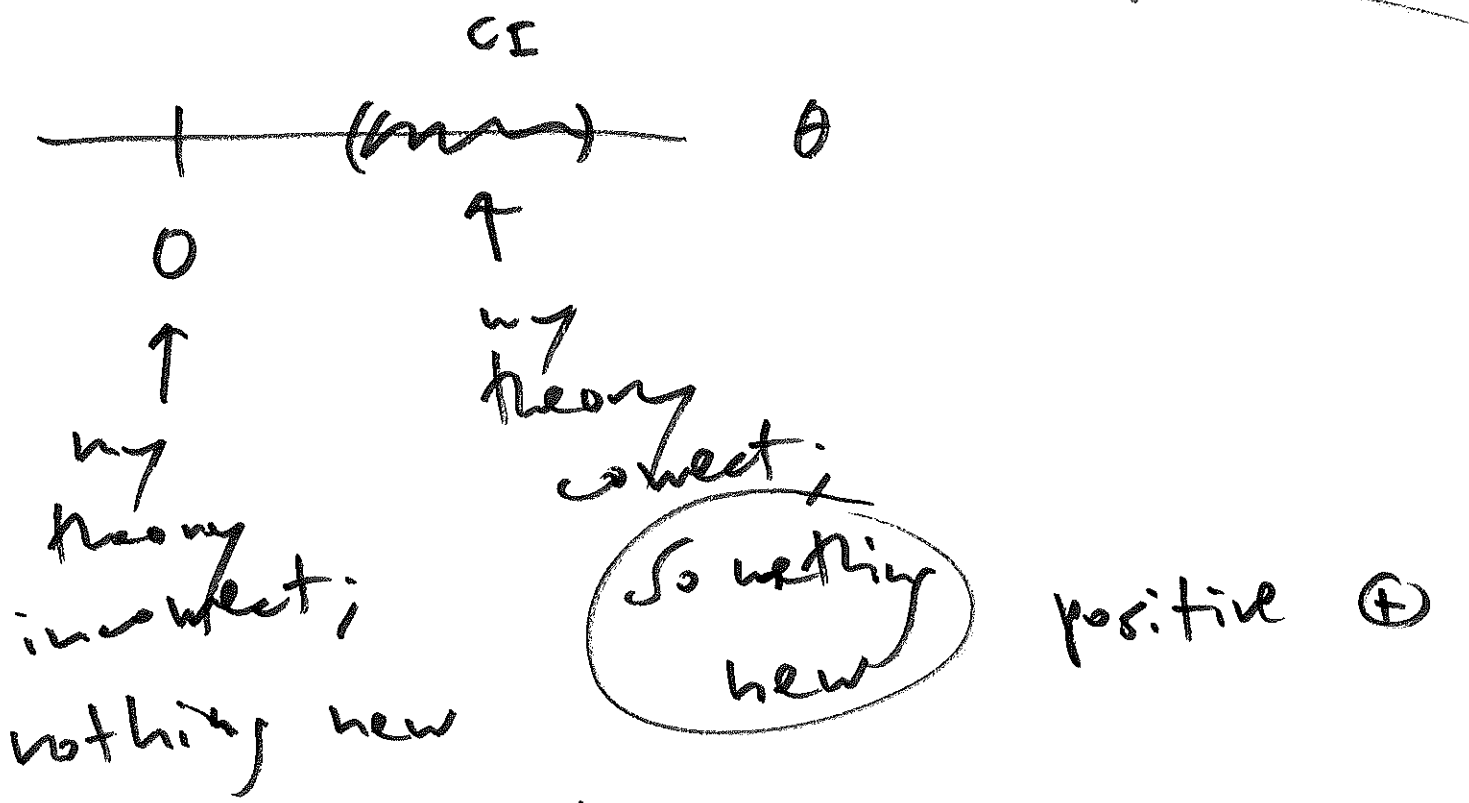 CI
θ
0
my
theory
incorrect;
nothing new
my
theory
correct;
Something
new
positive +